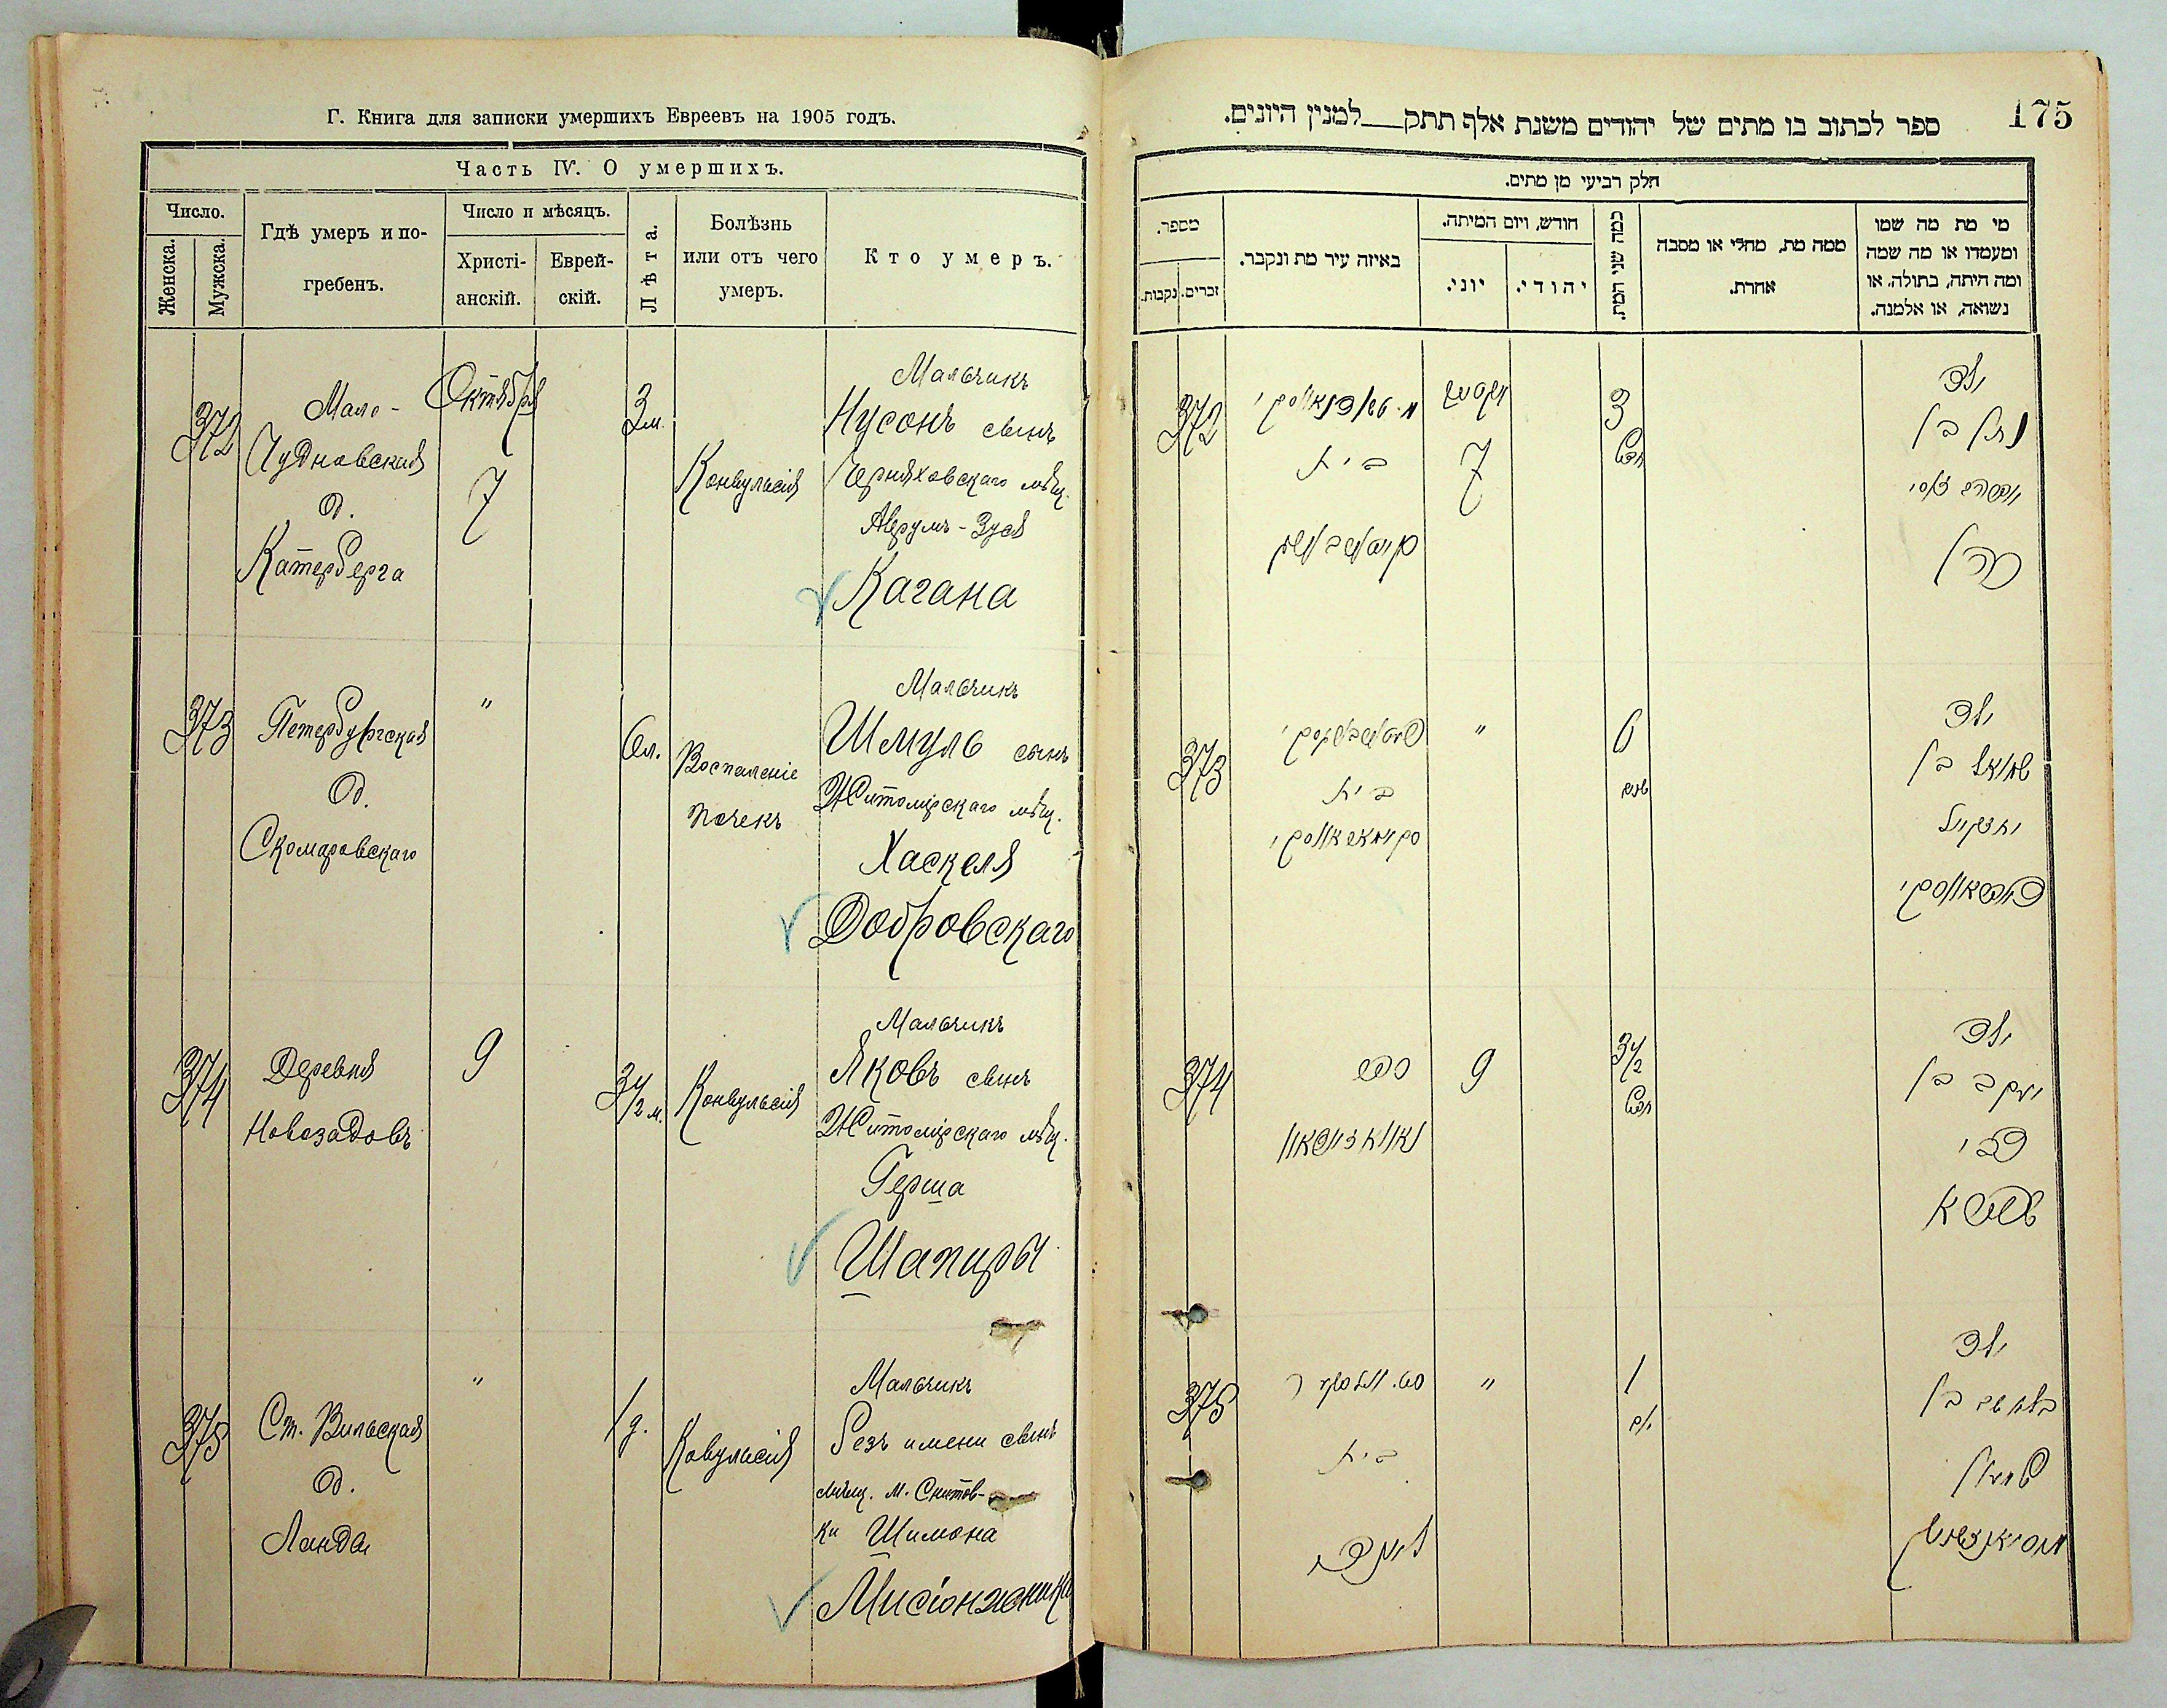 Г. Книга для записки умершихъ Евреевъ на 1905 годъ.
Часть IV. О умершихъ.
Число.
Женска.
Мужска.
Гдѣ умеръ и по-
гребенъ.
Число и мѣсяцъ.
Христі-
анскій.
Еврей-
скій.
Лѣта.
Болѣзнь
или отъ чего
умеръ.
Кто умеръ.
372
Мало-
Чудновская
д.
Катерберга
Октября
7
3
м.
Конвульсія
Мальчикъ
Нусонъ сынъ
Черняховскаго мѣщ.
Аврумъ-Зуся
Кагана
373
Петербургская
д.
Скомаровскаго
"
6 л.
Воспаленіе
почекъ
Мальчикъ
Шмуль сынъ
Житомірскаго мѣщ.
Хаскеля
Добровскаго
374
Деревня
Новозадовъ
9
3 1/2 м.
Конвульсія
Мальчикъ
Яковъ сынъ
Житомірскаго мѣщ.
Герша
Шапиры
375
Ст. Вильская
д.
Ланда
"
1 д.
Ковульсія
Мальчикъ
Безъ имени сынъ
мѣщ. м. Снитов-
ки Шимона
Мисіонжника
175
ספר לכתוב בו מתים של יהודים משנת אלף תתק למנין היונים.
חלק רביעי מן מתים.
מספר.
זכרים.
נקבות.
באיזה עיר מת ונקבר.
חודש, ויום המיתה.
יוני.
יהודי.
כמה שני המת.
ממה מת, מחלי או מסבה
אחרת.
מי מת מה שמו
ומעמדו או מה שמה
ומה היתה, בתולה, או
נשואה, או אלמנה.
372
בית
7
3
חדש
ילד
נתן בן
כהן
373
בית
"
6
שנים
ילד
שמואל בן
יחזקיל
374
כפר
9
3 1/2
חדש
ילד
יעקב בן
צבי
שפירא
375
בית
"
1
יום
ילד
בלא שם בן
שמעון